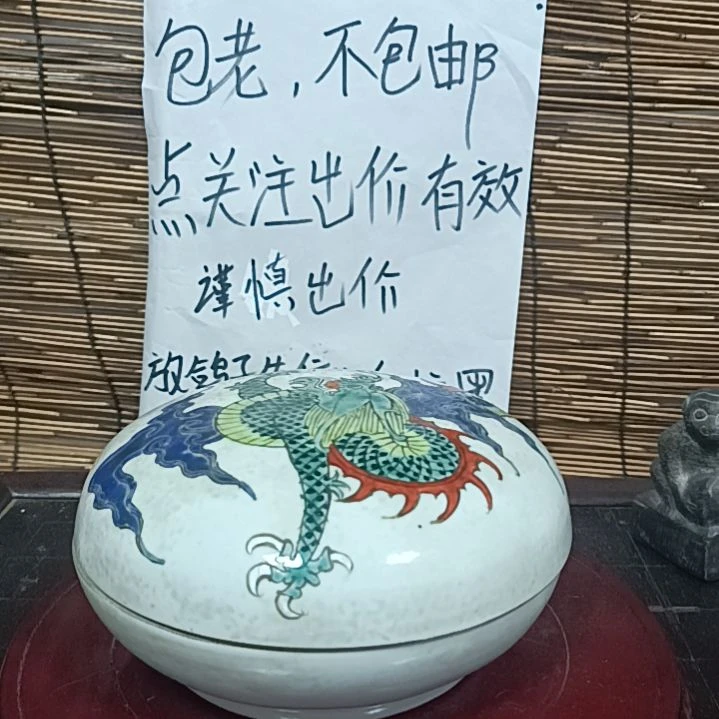 包老，不包邮
点关注出价有效
谨慎出价
放鸽子